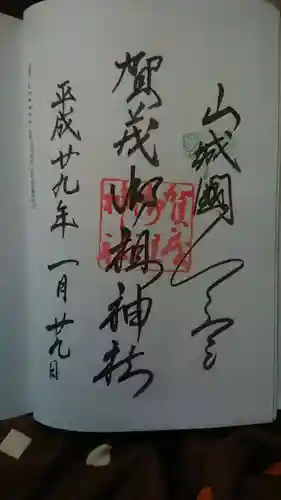 山城國一之宮
賀茂御祖神社
平成廿九年一月廿九日